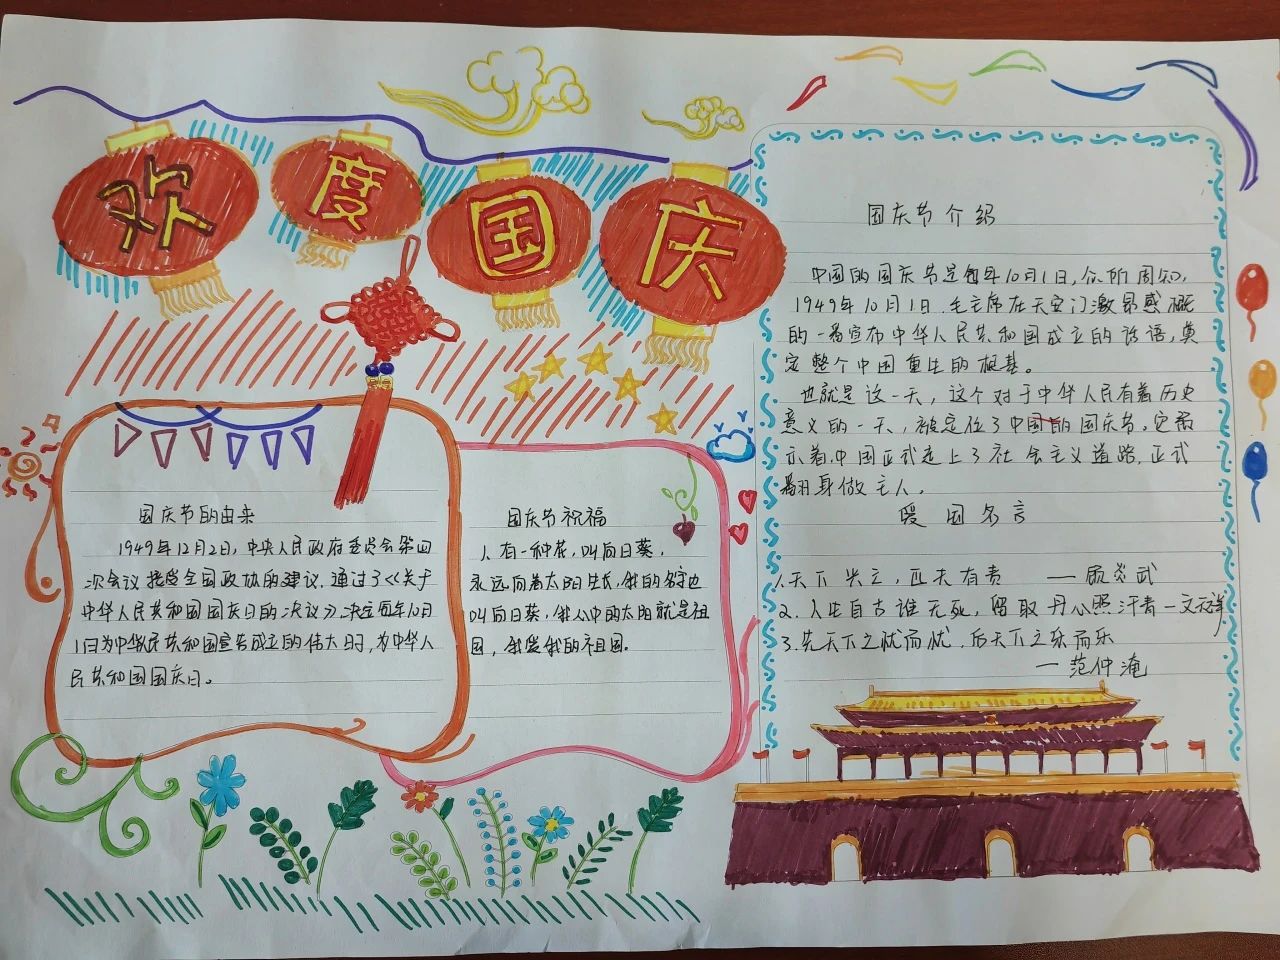 欢度国庆
国庆节的由来
1949年12月2日,中央人民政府委员会第四
次会议接受全国政协的建议,通过了《关于
中华人民共和国国庆日的决议》,决定每年10月
1日为中华民共和国宣告成立的伟大日时,为中华人
民共和国国庆日。
国庆节祝福
1、有一种花,叫向日葵,
永远向着太阳生长,我的名字也
叫向日葵,我心中的太阳就是祖
国,我爱我的祖国.
国庆节介绍
中国的国庆节是每年10月1日,众所周知,
1949年10月1日,毛主席在天安门激昂感概
的一番宣布中华人民共和国成立的话语,奠
定整个中国重生的根基。
也就是这一天,这个对于中华人民有着历史
意义的一天,被定位了中国的国庆节,它预
示着,中国正式走上了社会主义道路,正式
翻身做主人.
爱国名言
1.天下兴亡,匹夫有责 —顾炎武
2.人生自古谁无死,留取丹心照汗青—文天祥
3.先天下之忧而忧,后天下之乐而乐
—范仲淹